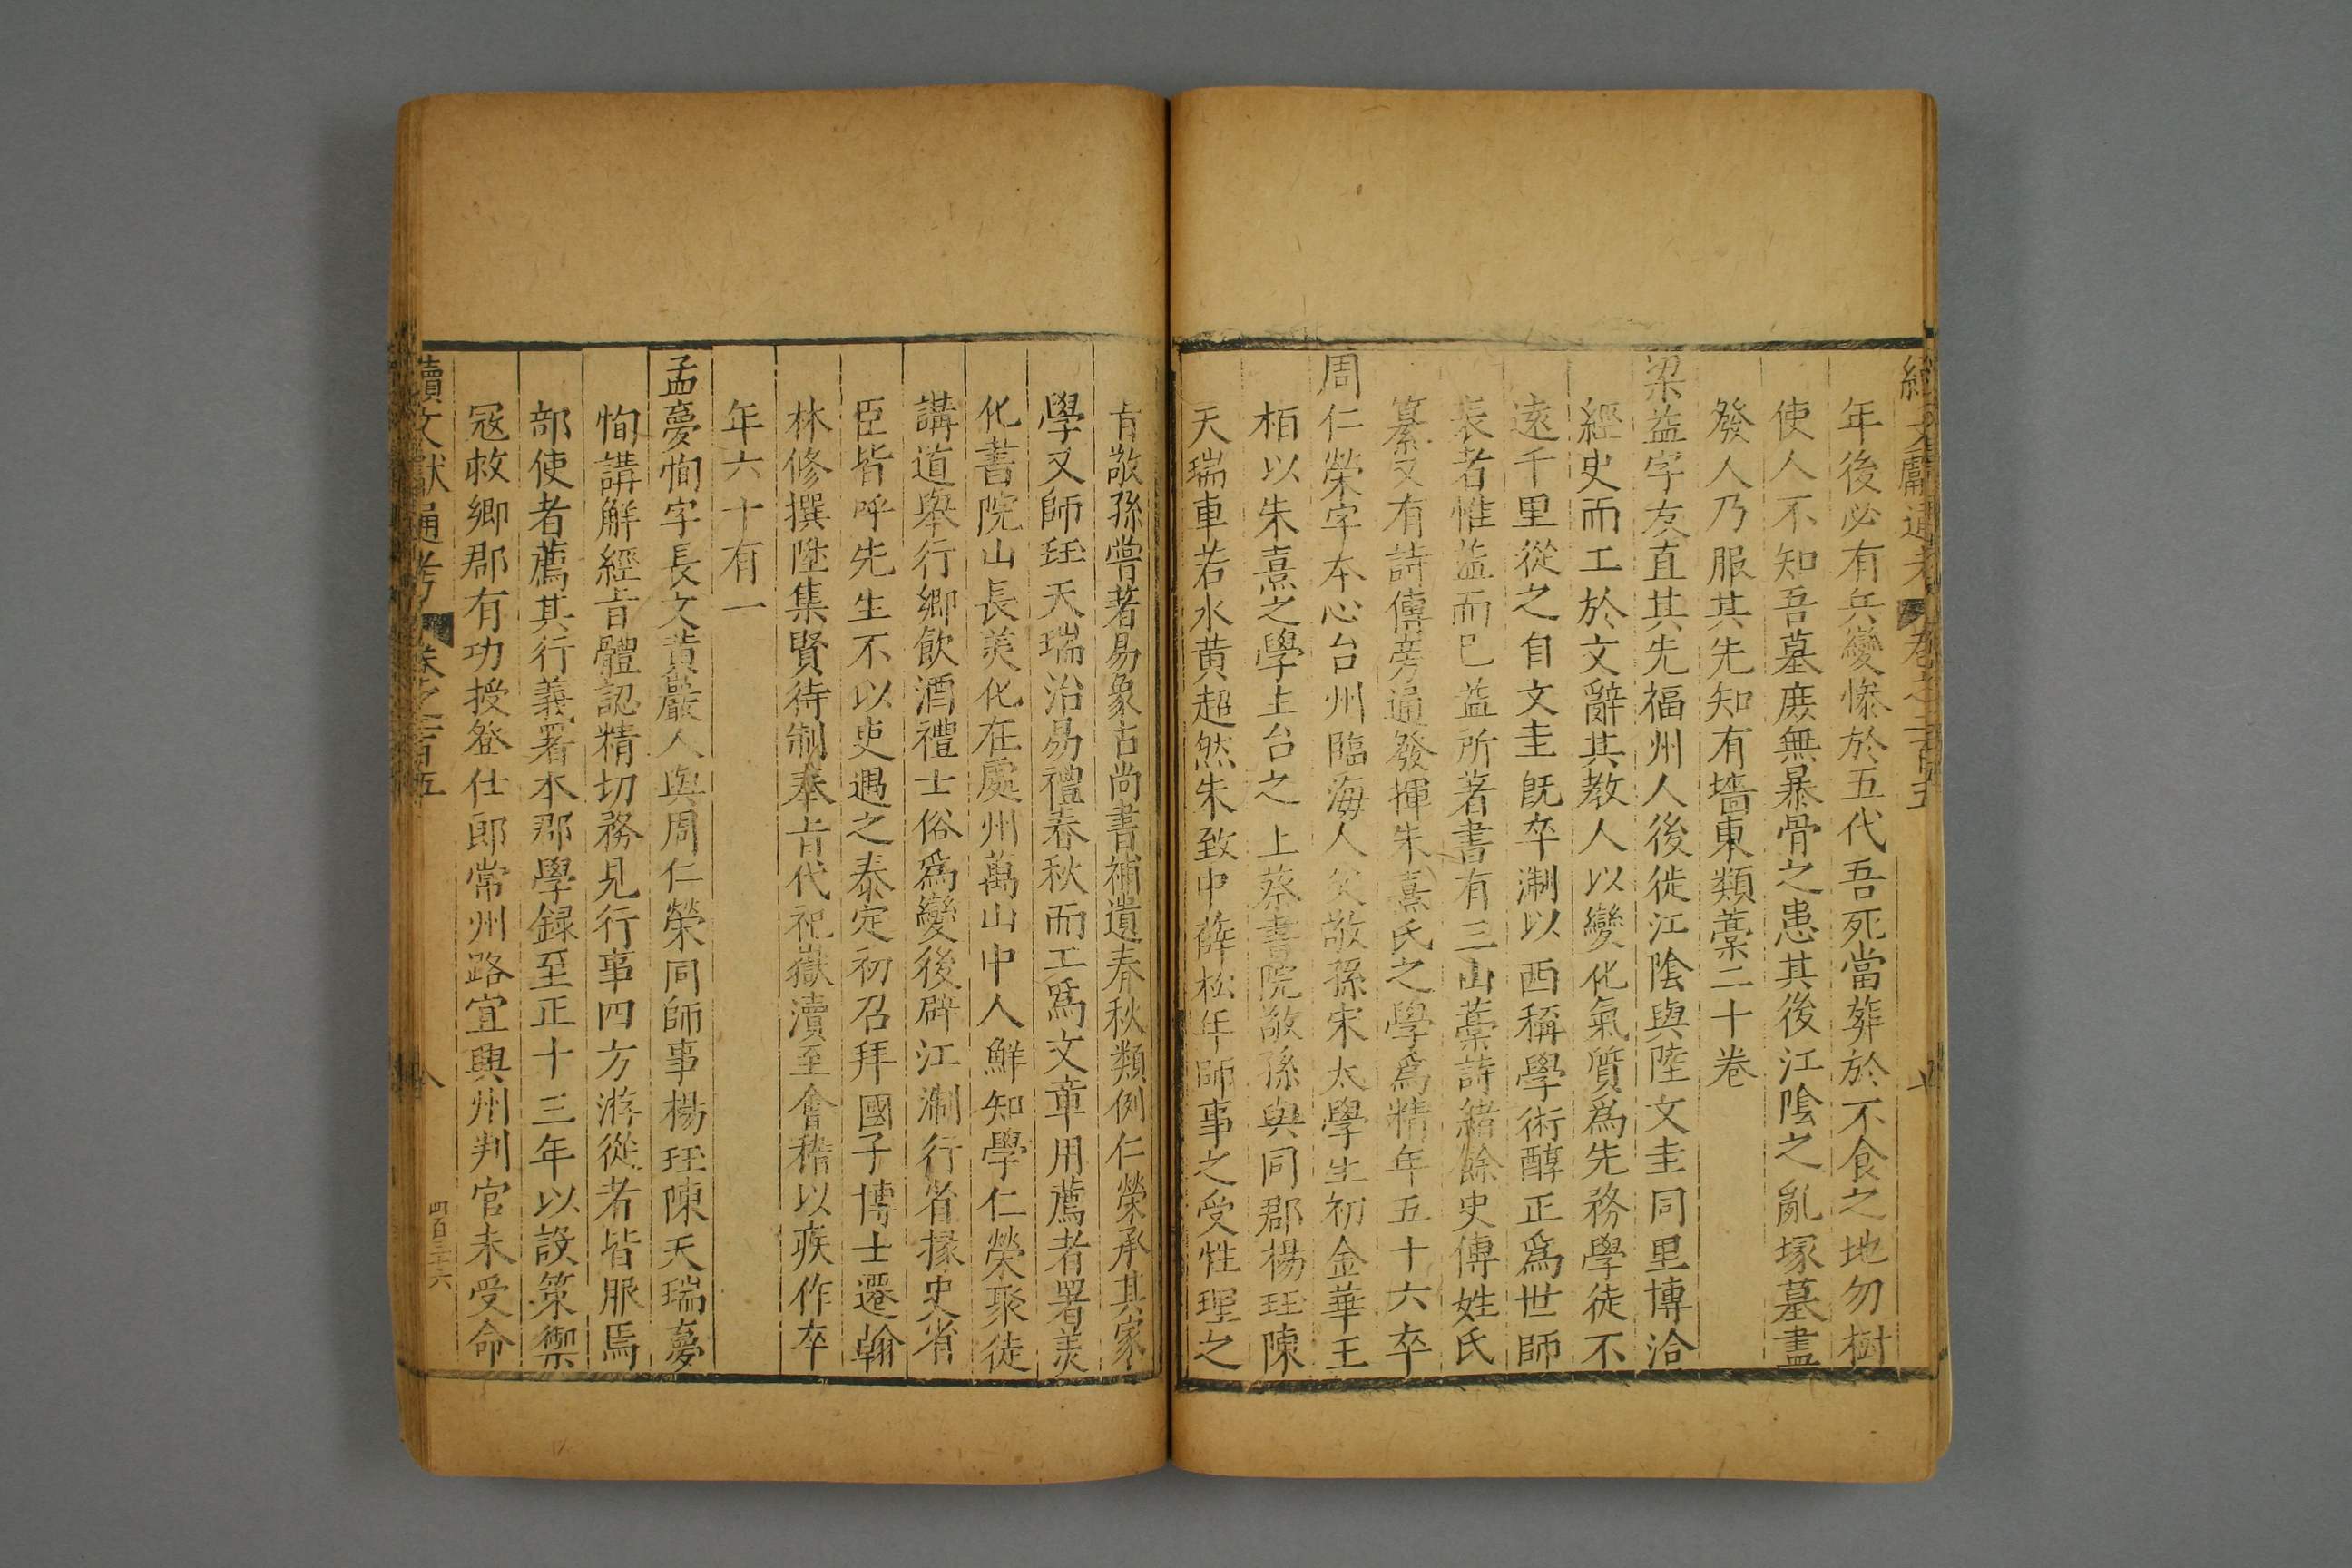 續文獻通考 卷之二百五
年後必有兵變慘於五代吾死當葬於不食之地勿樹
使人不知吾墓庻無暴骨之患其後江陰之亂塚墓盡
發人乃服其先知有墻東類藁二十卷
梁益字友直其先福州人後徙江陰與陸文圭同里博洽
經史而工於文辭其教人以變化氣質爲先務學徒不
遠千里從之自文圭旣卒淛以西稱學術醇正爲世師
表者惟益而巳益所著書有三山藁詩緒餘史傳姓氏
纂又有詩傳旁通發揮朱熹氏之學爲精年五十六卒
周仁榮字本心台州臨海人父敬孫宋太學生初金華王
栢以朱熹之學主台之上蔡書院敬孫與同郡楊珏陳
天瑞車若水黄超然朱致中薛松年師事之受性理之
㫖敬孫甞著易象占尚書補遺春秋類例仁榮承其家
學又師珏天瑞治易禮春秋而工爲文章用薦者署美
化書院山長美化在處州萬山中人鮮知學仁榮聚徒
講道舉行鄉飲酒禮士俗爲變後辟江淛行省掾史省
臣皆呼先生不以吏遇之泰定初召拜國子博士遷翰
林修撰陞集賢待制奉㫖代祀嶽瀆至會稽以疾作卒
年六十有一
孟夢恂字長文黄巖人與周仁榮同師事楊珏陳天瑞夢
恂講解經㫖體認精切務見行事四方游從者皆服焉
部使者薦其行義署本郡學録至正十三年以設策禦
冦救鄉郡有功授登仕郎常州路宜興州判官未受命
續文獻通考 卷之二百五 八 四百三十六